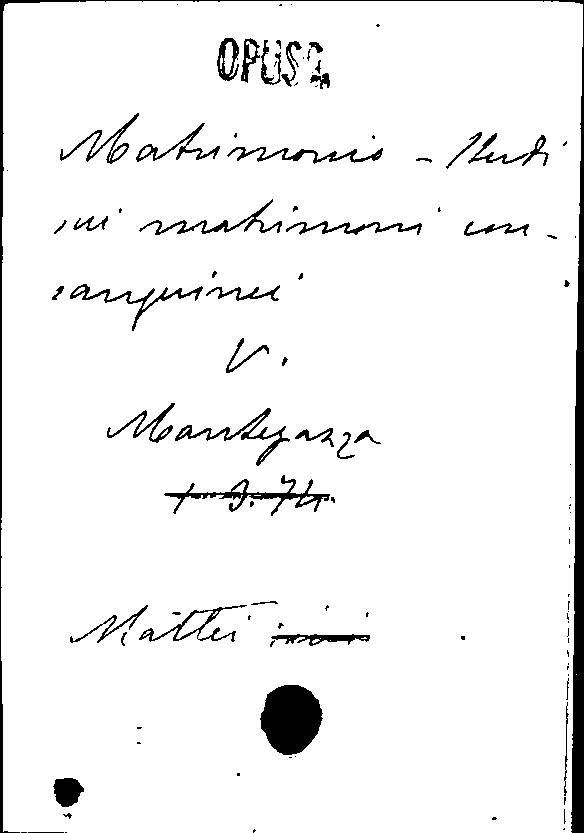 OPUSC.
Matrimonio - Studi
sui matrimoni con-
sanguinei
V.
Mantegazza
1. 3. 74.
Mattei